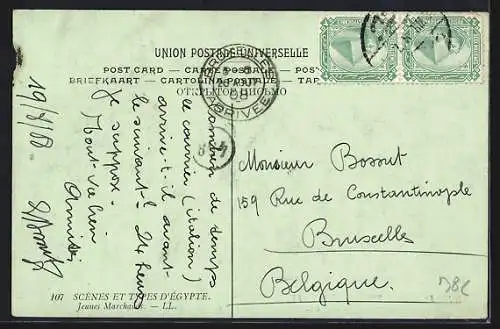 UNION POSTALE UNIVERSELLE
POST CARD — CARTE POSTALE — POST
BRIEFKAART — CARTOLINA POSTALE — TAR
ОТКРЫТОЕ ПИСЬМО
BRUXELLES
ARRIVEE
19/8/08
Combien de temps
le courrier (italien)
arrive-t-il avant
le suivant? 24 heures
je suppose.
Tout va bien
Amitiés
Monsieur Bossut
159 Rue de Constantinople
Bruxelles
Belgique.
107 SCÈNES ET TYPES D'ÉGYPTE.
Jeunes Marchands. — LL.
D8C